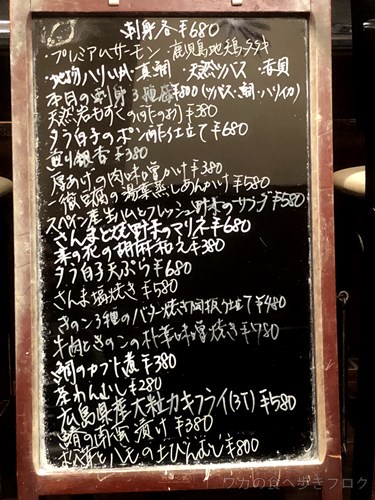 刺身各¥680
・プレミアムサーモン・鹿児島地鶏タタキ
・ハリイカ・真鯛・天然ツバス・赤貝
本日の刺身3種盛¥800(ツバス・鯛・ハリイカ)
天然岩もずく ¥380
タラ白子のポン酢仕立て¥680
煎り銀杏¥380
厚あげの肉味噌かけ¥380
豆腐の湯葉蒸しあんかけ¥580
スペイン産生ハムとフレッシュ野菜のサラダ¥580
さんまと野菜のマリネ¥680
菜の花の胡麻和え¥380
タラ白子天ぷら¥680
さんま塩焼き¥580
きのこ3種のバター焼き ¥480
牛肉ときのこの朴葉味噌焼き¥780
鯛のカブト煮¥380
茶わんむし¥280
広島県産大粒カキフライ(3T)¥580
鯖の 漬け¥380
松茸とハモの土びんむし¥800
ワカの食べ歩きブログ